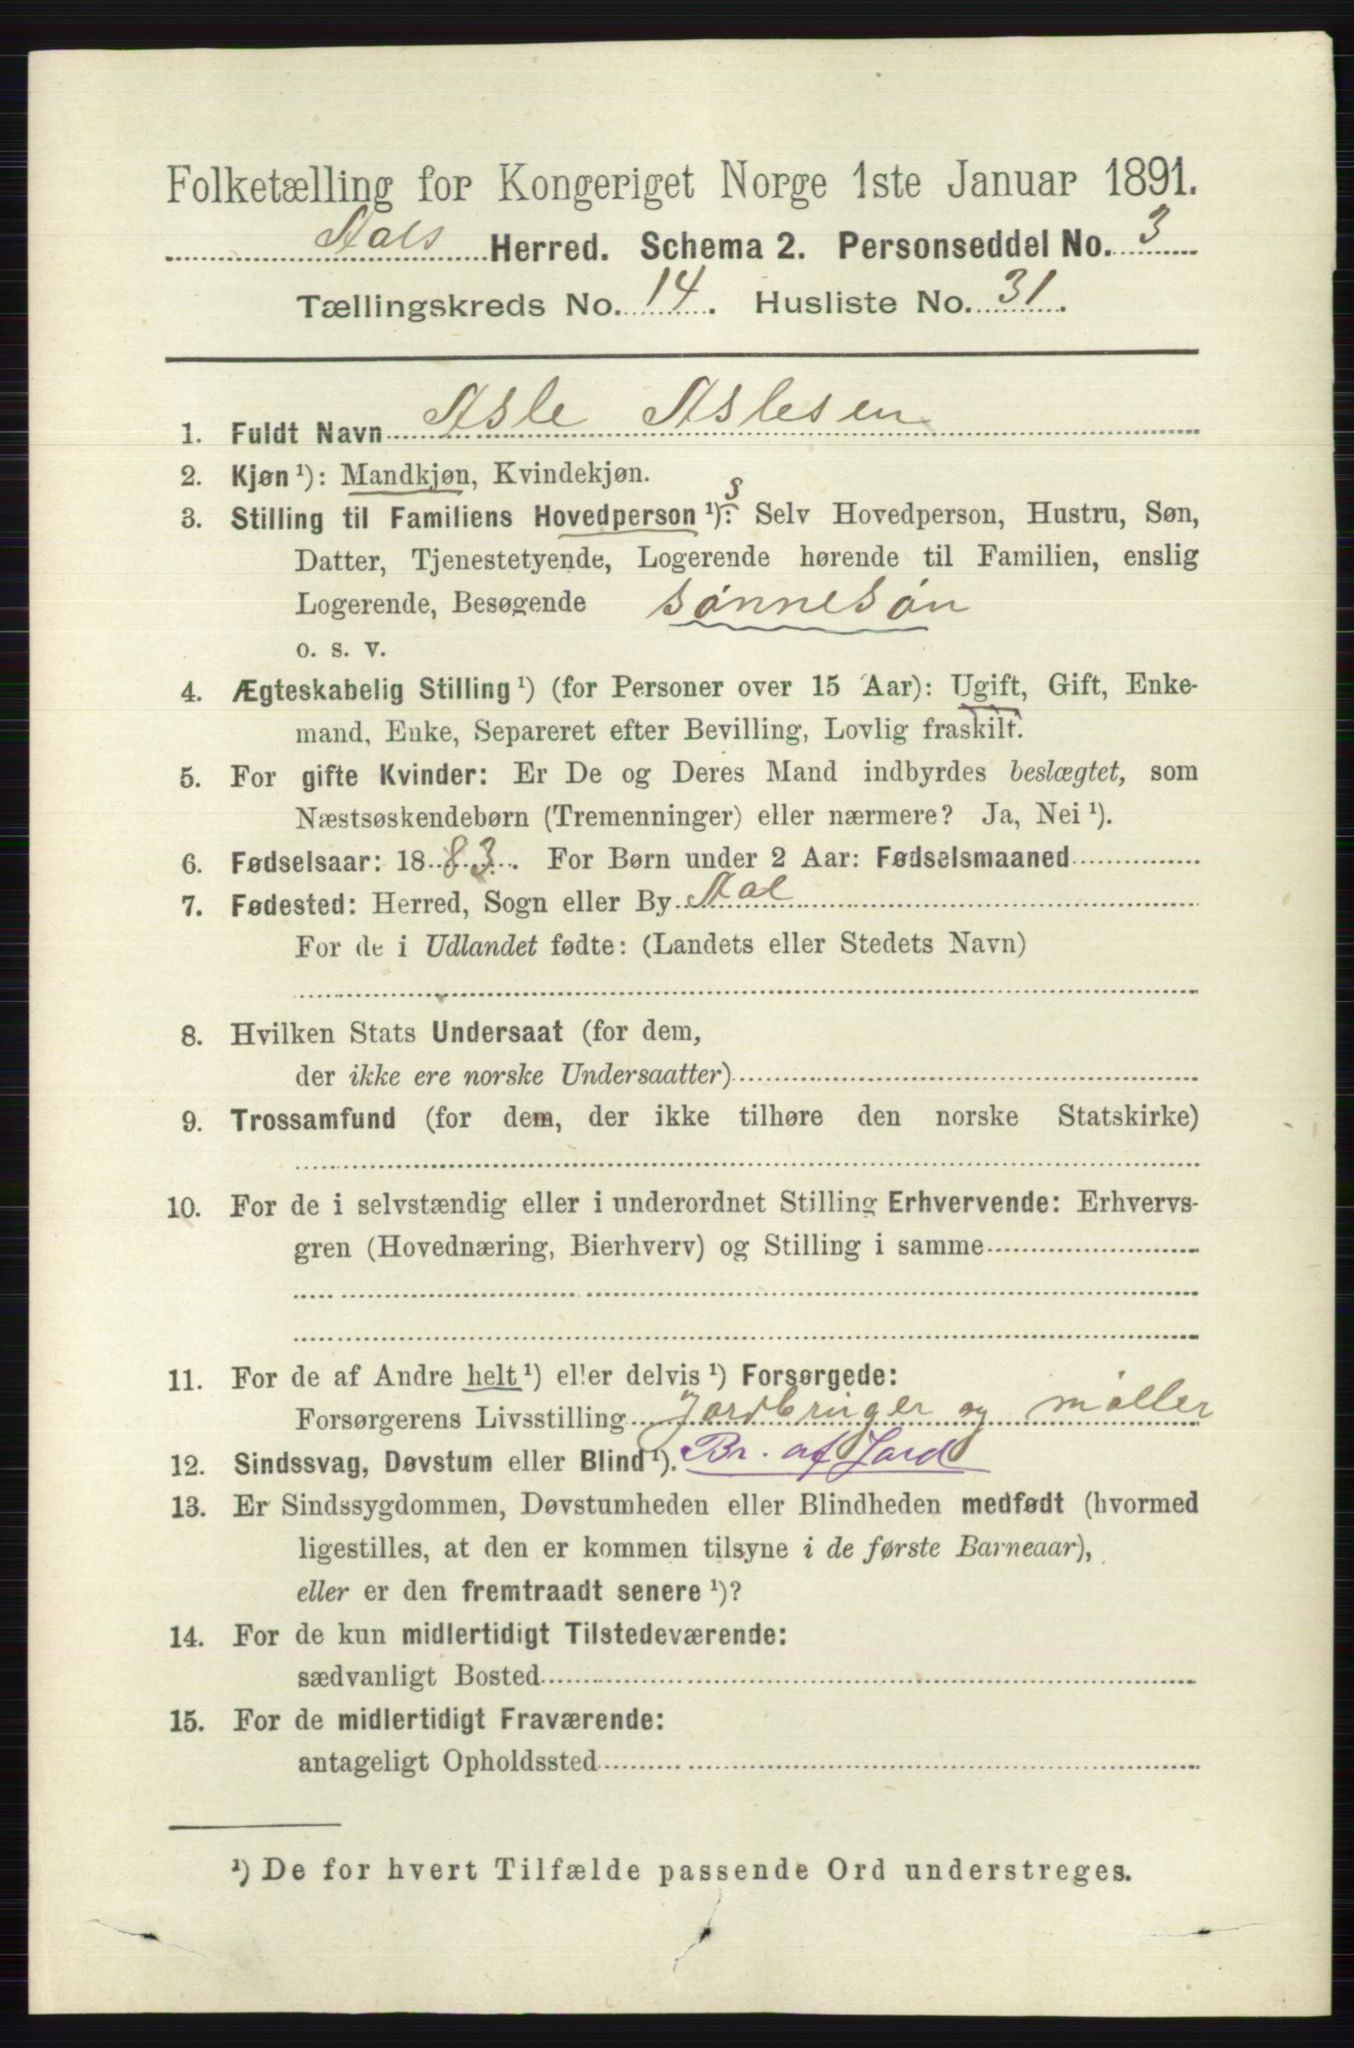 Folketælling for Kongeriget Norge 1ste Januar 1891.
Aals Herred. Schema 2. Personseddel No. 3
Tællingskreds No. 14. Husliste No. 31.
1. Fuldt Navn Asle Aslesen
2. Kjøn ¹): Mandkjøn, Kvindekjøn.
3. Stilling til Familiens Hovedperson ¹):s Selv Hovedperson, Hustru, Søn,
Datter, Tjenestetyende, Logerende hørende til Familien, enslig
Logerende, Besøgende sønnesøn
o. s. v.
4. Ægteskabelig Stilling ¹) (for Personer over 15 Aar): Ugift, Gift, Enke-
mand, Enke, Separeret efter Bevilling, Lovlig fraskilt.
5. For gifte Kvinder: Er De og Deres Mand indbyrdes beslægtet, som
Næstsøskendebørn (Tremenninger) eller nærmere? Ja, Nei ¹).
6. Fødselsaar: 1883. For Børn under 2 Aar: Fødselsmaaned
7. Fødested: Herred, Sogn eller By Aal
For de i Udlandet fødte: (Landets eller Stedets Navn)
8. Hvilken Stats Undersaat (for dem,
der ikke ere norske Undersaatter)
9. Trossamfund (for dem, der ikke tilhøre den norske Statskirke)
10. For de i selvstændig eller i underordnet Stilling Erhvervende: Erhvervs-
gren (Hovednæring, Bierhverv) og Stilling i samme
11. For de af Andre helt ¹) eller delvis ¹) Forsørgede:
Forsørgerens Livsstilling Jordbruger og møller
12. Sindssvag, Døvstum eller Blind ¹). Br. af Jord
13. Er Sindssygdommen, Døvstumheden eller Blindheden medfødt (hvormed
ligestilles, at den er kommen tilsyne i de første Barneaar),
eller er den fremtraadt senere ¹)?
14. For de kun midlertidigt Tilstedeværende:
sædvanligt Bosted
15. For de midlertidigt Fraværende:
antageligt Opholdssted
¹) De for hvert Tilfælde passende Ord understreges.